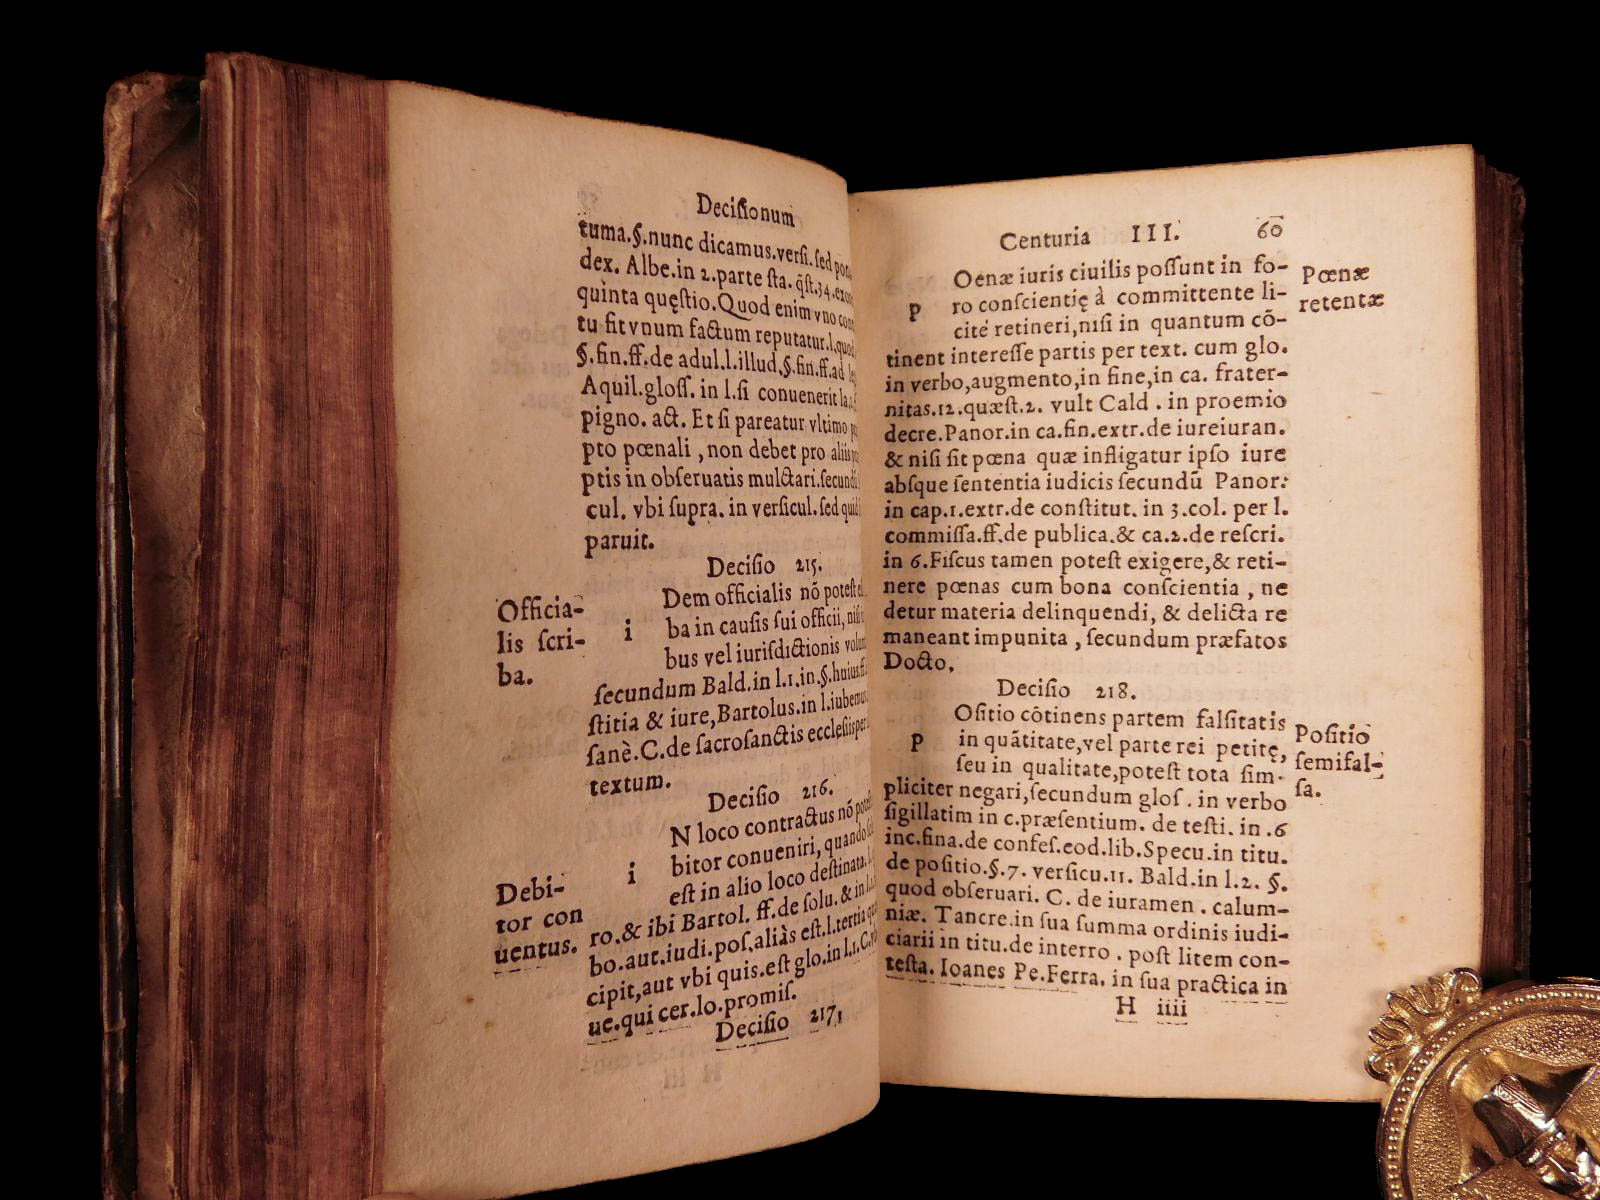 Deciſionum
tuma.§.nunc dicamus.verſi.ſed
dex. Albe.in 2.parte ſta. q̃ſt.34.
quinta quęſtio.Quod enim vno
tu fit vnum factum reputatur.l.quod
§.fin.ff.de adul.l.illud.§.fin.ff.ad
Aquil.gloſſ. in l.ſi conuenerit
pigno. act. Et ſi pareatur vltimo
pto pœnali, non debet pro aliis
ptis in obſeruatis mulctari.ſecundũ
cul. vbi ſupra. in verſicul.ſed quid
paruit.
Deciſio 215.
Officia-
lis ſcri-
ba.
i
Dem officialis nõ poteſt
ba in cauſis ſui officii, niſi
bus vel iuriſdictionis
ſecundum Bald.in l.1.in.§.huius.
ſtitia & iure,Bartolus.in l.iubemus.
ſanè.C.de ſacroſanctis eccleſiis
textum.
Deciſio 216.
Debi-
tor con
uentus.
i
N loco contractus nõ
bitor conueniri, quando
eſt in alio loco deſtinata.
ro.& ibi Bartol. ff.de ſolu. & in
bo.aut.iudi.poſ.aliàs eſt.l.tertia
cipit,aut vbi quis.eſt glo.in l.1.C.
ue.qui cer.lo.promiſ.
Deciſio 217,
Centuria III. 60
p
Oenæ iuris ciuilis poſſunt in fo-
ro conſcientię à committente li-
cité retineri,niſi in quantum cõ-
tinent intereſſe partis per text. cum glo.
in verbo,augmento,in fine,in ca. frater-
nitas.12.quæſt.2. vult Cald . in proemio
decre.Panor.in ca.fin.extr.de iureiuran.
& niſi ſit pœna quæ infligatur ipſo iure
abſque ſententia iudicis ſecundũ Panor:
in cap.1.extr.de conſtitut. in 3.col. per l.
commiſſa.ff.de publica.& ca.2.de reſcri.
in 6.Fiſcus tamen poteſt exigere,& reti-
nere pœnas cum bona conſcientia , ne
detur materia delinquendi, & delicta re
maneant impunita , ſecundum præfatos
Docto.
Pœnæ
retentæ
Deciſio 218.
p
Oſitio cõtinens partem falſitatis
in quãtitate,vel parte rei petitę,
ſeu in qualitate,poteſt tota ſim-
pliciter negari,ſecundum gloſ . in verbo
ſigillatim in c.præſentium. de teſti. in .6
inc.fina.de confeſ.eod.lib.Specu.in titu.
de poſitio.§.7. verſicu.11. Bald.in l.2. §.
quod obſeruari. C. de iuramen . calum-
niæ. Tancre.in ſua ſumma ordinis iudi-
ciarii in titu.de interro . poſt litem con-
teſta. Ioanes Pe.Ferra. in ſua practica in
Poſitio
ſemifal-
ſa.
H iiii